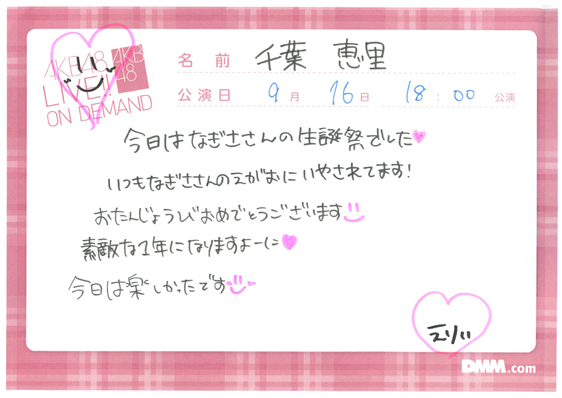 AKB48 AKB48
LIVE!!
ON DEMAND
名前 千葉 恵里
公演日 9月 16日 18:00 公演
今日はなぎささんの生誕祭でした
いつもなぎささんのえがおにいやされてます!
おたんじょうびおめでとうございます
素敵な1年になりますよーに
今日は楽しかったです
えりぃ
DMM.com